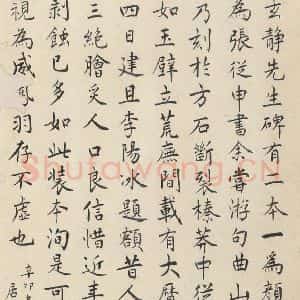 玄静先生碑有二本一為顏
為張從申書余嘗游句曲山
乃刻於方石斷裂榛莽中從
如玉壁立荒廡間載有大曆
四日建且李陽冰題額昔人
三絕膾炙人口良信惜近年
剥蝕已多如此裝本洵是可
視為威鳳羽存不虛也
辛卯
居
Shufawang.CN